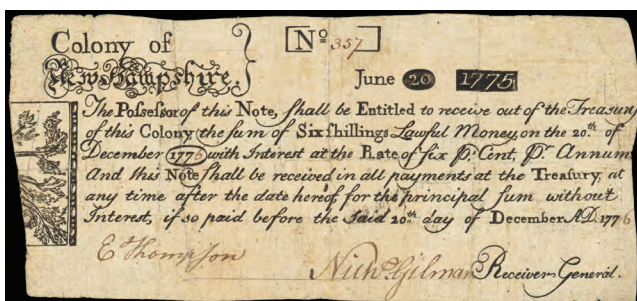 Colony of
New Hampshire,
No 357
June 20 1775
The Possessor of this Note, shall be Entitled to receive out of the Treasury
of this Colony the sum of Six shillings Lawful Money, on the 20.th of
December 1776 with Interest at the Rate of six Pr. Cent, Pr. Annum
And this Note shall be received in all payments at the Treasury, at
any time after the date hereof, for the principal sum without
Interest, if so paid before the said 20.th day of December A.D. 1776
E Thompson
Nichs. Gilman Receiver General.